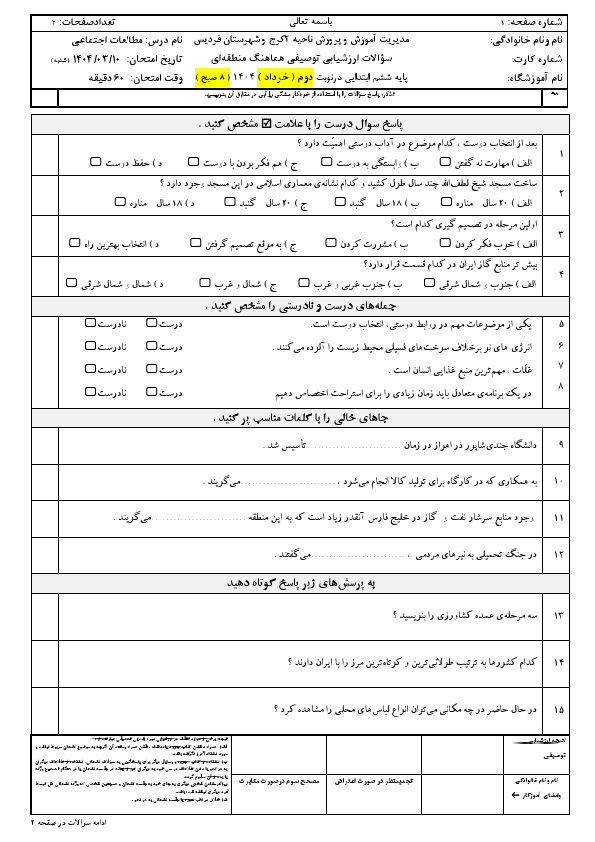 شماره صفحه: ۱
باسمه تعالی
تعدادصفحات: ۲
نام ونام خانوادگی:
مدیریت آموزش و پرورش ناحیه ۲کرج وشهرستان فردیس
نام درس: مطالعات اجتماعی
شماره کارت:
سؤالات ارزشیابی توصیفی هماهنگ منطقه‌ای
تاریخ امتحان: ۱۴۰۴/۰۳/۱۰ (شنبه)
نام آموزشگاه:
پایه ششم ابتدایی درنوبت دوم ( خرداد ) ۱۴۰۴ ( ۸ صبح )
وقت امتحان: ۶۰ دقیقه
پاسخ سوال درست را با علامت ☑ مشخص کنید .
۱ بعد از انتخاب دوست ، کدام موضوع در آداب دوستی اهمیّت دارد ؟
الف ) مهارت نه گفتن ☐ ب ) وابستگی به دوست ☐ ج ) هم فکر بودن با دوست ☐ د ) حفظ دوست ☐
۲ ساخت مسجد شیخ لطف‌الله چند سال طول کشید و کدام نشانه‌ی معماری اسلامی در این مسجد وجود دارد ؟
الف ) ۲۰ سال - مناره ☐ ب ) ۱۸ سال - گنبد ☐ ج ) ۲۰ سال - گنبد ☐ د ) ۱۸ سال - مناره ☐
۳ اولین مرحله در تصمیم گیری کدام است؟
الف ) خوب فکر کردن ☐ ب ) مشورت کردن ☐ ج ) به موقع تصمیم گرفتن ☐ د ) انتخاب بهترین راه ☐
۴ بیش تر منابع گاز ایران در کدام قسمت قرار دارد؟
الف ) جنوب و شمال شرقی ☐ ب ) جنوب غربی و غرب ☐ ج ) شمال و غرب ☐ د ) شمال و شمال شرقی ☐
جمله‌های درست و نادرستی را مشخص کنید .
۵ یکی از موضوعات مهم در روابط دوستی، انتخاب دوست است. درست ☐ نادرست ☐
۶ انرژی های نو برخلاف سوخت‌های فسیلی محیط زیست را آلوده می‌کنند . درست ☐ نادرست ☐
۷ غلّات ، مهم‌ترین منبع غذایی انسان است . درست ☐ نادرست ☐
۸ در یک برنامه‌ی متعادل باید زمان زیادی را برای استراحت اختصاص دهیم درست ☐ نادرست ☐
جاهای خالی را با کلمات مناسب پر کنید .
۹ دانشگاه جندی‌شاپور در اهواز در زمان .......................... تأسیس شد .
۱۰ به همکاری که در کارگاه برای تولید کالا انجام می‌شود ، .......................... می‌گویند .
۱۱ وجود منابع سرشار نفت و گاز در خلیج فارس آنقدر زیاد است که به این منطقه .......................... می‌گویند .
۱۲ در جنگ تحمیلی به نیرهای مردمی ، .......................... می‌گفتند .
به پرسش‌های زیر پاسخ کوتاه دهید
۱۳ سه مرحله‌ی عمده کشاورزی را بنویسید ؟
۱۴ کدام کشورها به ترتیب طولانی‌ترین و کوتاه‌ترین مرز را با ایران دارند ؟
۱۵ در حال حاضر در چه مکانی می‌توان انواع لباس‌های محلی را مشاهده کرد ؟
توصیفی
نام و نام خانوادگی
وامضای آموزگار ←
تجدیدنظر در صورت اعتراض
مصحح سوم درصورت مغایرت
ادامه سرالات در صفحه ۲